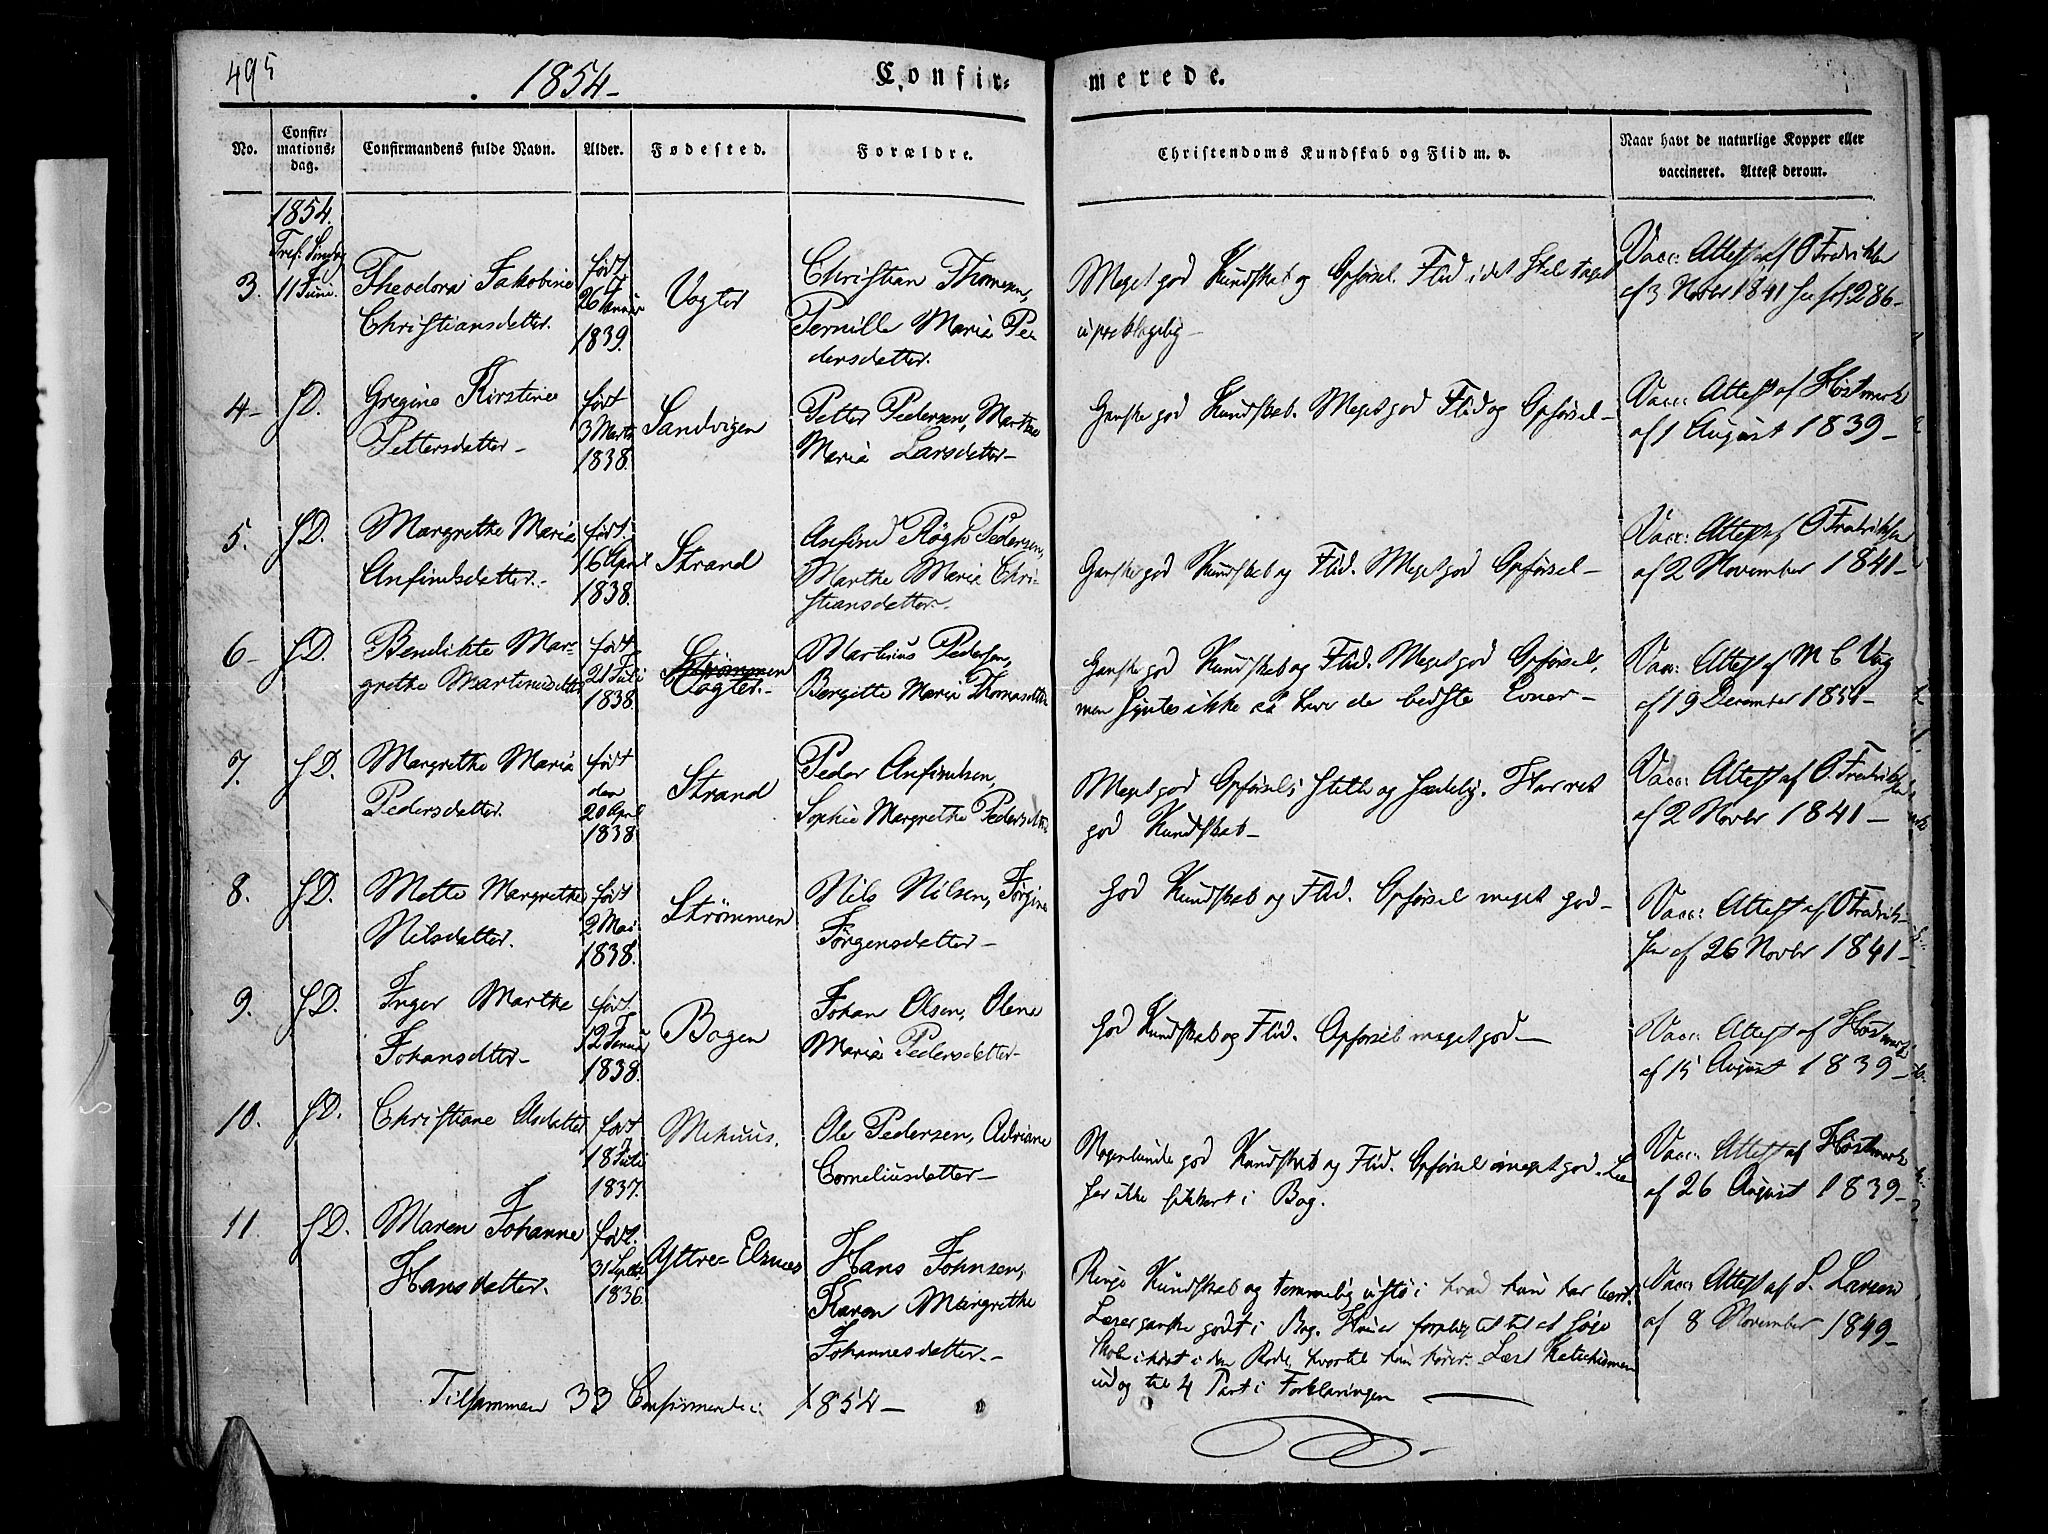 495
1854-
Confir-
merede.
No.
Confir-
mations-
dag.
Confirmandens fulde Navn.
Alder.
Fødested.
Forældre.
Christendoms Kundskab og Flid m. v.
Naar havt de naturlige Kopper eller
vaccineret. Attest derom.
1854.
Tref. Søndag
11 Juni.
3.
Theodora Jakobine
Christiansdatter.
født
26 Januar
1839.
Vogter
Christian Thomesen,
Pernille Maria Pe-
dersdatter.
Meget god Kundskab og Opførsel. Flid i det hele taget
upaaklagelig
Vacc: Attest af O Fredriksen
af 3 Novbr 1841 see fol 286-
4-
JD.
Gregine Kirstine
Pettersdatter-
født
3 Marts
1838.
Sandvigen
Petter Pedersen, Marthe
Maria Larsdatter-
Ganske god Kundskab. Meget god Flid og Opførsel-
Vacc: Attest af Høstmark
af 1 August 1839-
5.
JD.
Margrethe Maria
Anfindsdatter.
født
16 April
1838.
Strand
Anfind Røgh Pedersen,
Marthe Maria Chri-
stiansdatter.
Ganske god Kundskab og Flid. Meget god Opførsel-
Vacc: Attest af O Fredriksen
af 2 November 1841-
6-
JD.
Benedikte Mar-
grethe Martinusdatter
født
21 Juli
1838.
Strømmen
Vogter.-
Martinus Pedersen,
Bergitte Maria Thomasdatter
Ganske god Kundskab og Flid. Meget god Opførsel,
men syntes ikke at have de bedste Evner-
Vacc: Attest af M C Vaag
af 19 December 1854-
7.
JD.
Margrethe Maria
Pedersdatter.
født
den
20 April
1838.
Strand
Peder Anfindsen,
Sophie Margrethe Pedersdatter
Meget god Opførsel, stille og sædelig. Har ret
god Kundskab-
Vacc: Attest af O. Fredriksen
af 2 Novbr 1841-
8.
JD.
Mette Margrethe
Nilsdatter.
født
2 Mai
1838.
Strømmen
Nils Nilsen, Jørgine
Jørgensdatter-
God Kundskab og Flid. Opførsel meget god-
Vacc: Attest af O Fredrik-
sen af 26 Novbr 1841-
9.
JD.
Inger Marthe
Johansdtter-
født
12 Januar
1838.
Bogen
Johan Olsen, Olene
Maria Pedersdatter-
God Kundskab og Flid. Opførsel meget god-
Vacc: Attest af Høstmark
af 15 August 1839-
10.
JD.
Christiane Olsdatter
født
18 Juli
1837.
Mehuus.
Ole Pedersen, Adriane
Corneliusdatter-
Nogenlunde god Kundskab og Flid. Opførsel meget god. Læ-
ser ikke sikkert i Bog.
Vacc: Attest af Høstmark
af 26 August 1839-
11.
JD.
Maren Johanne
Hansdatter.
født.
31
1836.
Yttre- Elsnes
Hans Johnsen,
Karen Margrethe
Johannesdatter.-
Ringe Kundskab og temmelig i hvad hun har lært.
Læser ganske godt i Bog. Hun er forpligtet til at søge
Skole i høst i den Rode, hvortil hun hører. Læst Katechismen
ud og til 4 Part i Forklaringen
Vacc: Attest af L. Larsen
af 8 November 1849-
Tilsammen 33 Confirmerede i 1854-